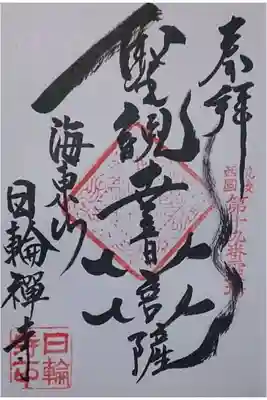 奉拝
西國第十九番
聖観世音菩薩
海東山
日輪禪寺
日輪寺印